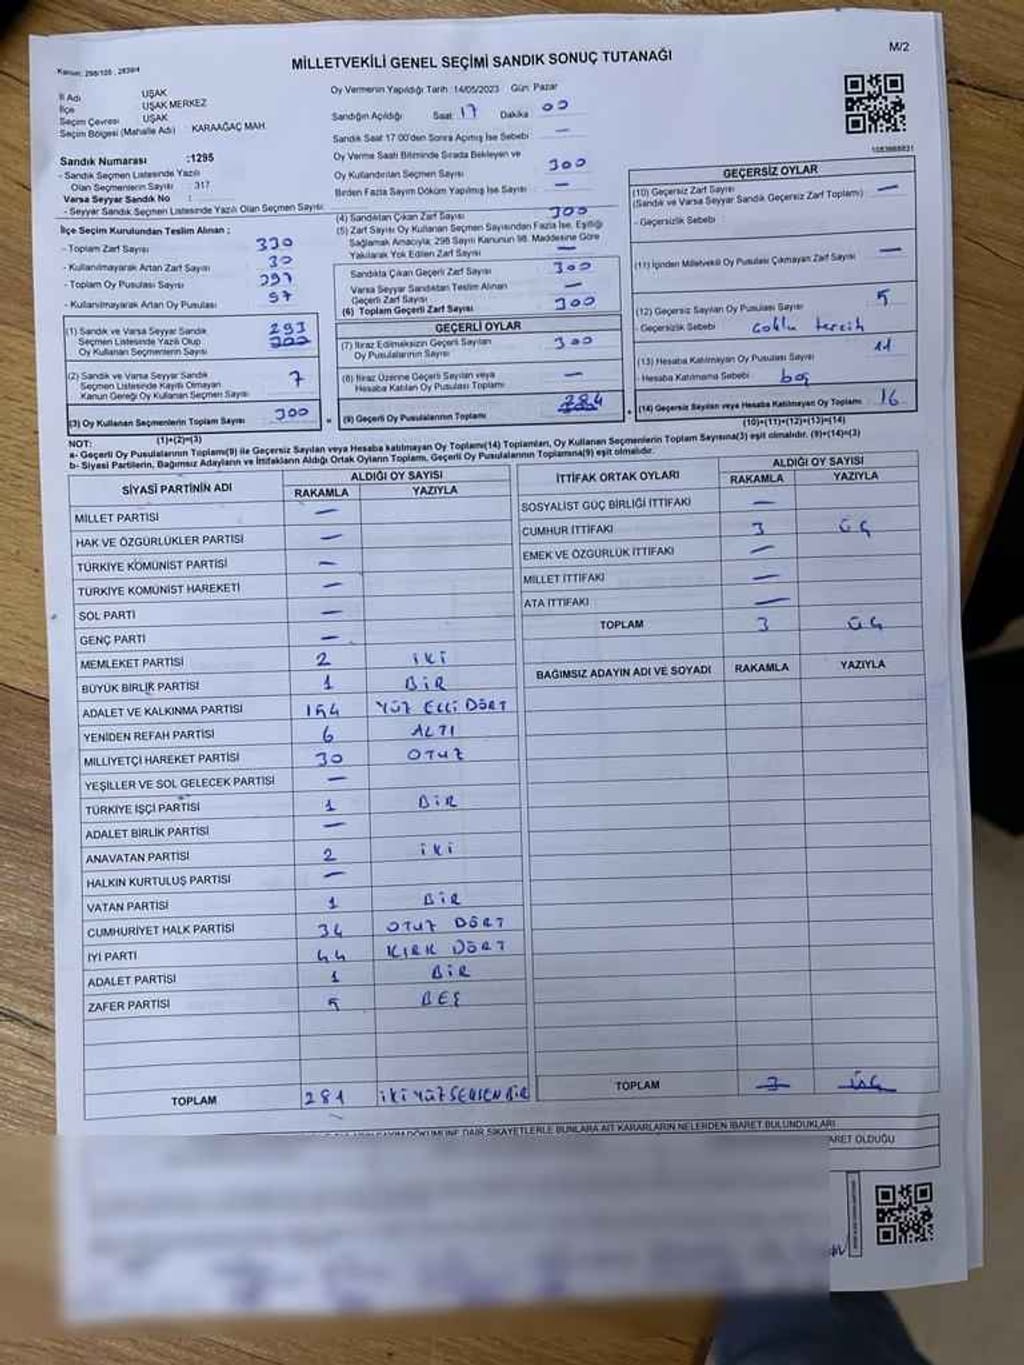 M/2
Kanun: 298/105, 2839/4
MİLLETVEKİLİ GENEL SEÇİMİ SANDIK SONUÇ TUTANAĞI
İl Adı UŞAK
İlçe UŞAK MERKEZ
Seçim Çevresi UŞAK
Seçim Bölgesi (Mahalle Adı) : KARAAĞAÇ MAH.
Sandık Numarası :1295
- Sandık Seçmen Listesinde Yazılı
Olan Seçmenlerin Sayısı : 317
Varsa Seyyar Sandık No :
- Seyyar Sandık Seçmen Listesinde Yazılı Olan Seçmen Sayısı:
İlçe Seçim Kurulundan Teslim Alınan :
- Toplam Zarf Sayısı 330
- Kullanılmayarak Artan Zarf Sayısı 30
- Toplam Oy Pusulası Sayısı
- Kullanılmayarak Artan Oy Pusulası
(1) Sandık ve Varsa Seyyar Sandık
Seçmen Listesinde Yazılı Olup
Oy Kullanan Seçmenlerin Sayısı 293
(2) Sandık ve Varsa Seyyar Sandık
Seçmen Listesinde Kayıtlı Olmayan
Kanun Gereği Oy Kullanan Seçmen Sayısı 7
(3) Oy Kullanan Seçmenlerin Toplam Sayısı 300
Oy Vermenin Yapıldığı Tarih :14/05/2023 Gün: Pazar
Sandığın Açıldığı Saat: 17 Dakika 00
Sandık Saat 17:00'den Sonra Açılmış İse Sebebi : —
Oy Verme Saati Bitiminde Sırada Bekleyen ve
Oy Kullandırılan Seçmen Sayısı 300
Birden Fazla Sayım Döküm Yapılmış İse Sayısı —
(4) Sandıktan Çıkan Zarf Sayısı 300
(5) Zarf Sayısı Oy Kullanan Seçmen Sayısından Fazla İse, Eşitliği
Sağlamak Amacıyla; 298 Sayılı Kanunun 98. Maddesine Göre
Yakılarak Yok Edilen Zarf Sayısı —
Sandıkta Çıkan Geçerli Zarf Sayısı 300
Varsa Seyyar Sandıktan Teslim Alınan
Geçerli Zarf Sayısı —
(6) Toplam Geçerli Zarf Sayısı 300
GEÇERLİ OYLAR
(7) İtiraz Edilmeksizin Geçerli Sayılan
Oy Pusulalarının Sayısı 300
(8) İtiraz Üzerine Geçerli Sayılan veya
Hesaba Katılan Oy Pusulası Toplamı —
(9) Geçerli Oy Pusulalarının Toplamı 284
1083988831
GEÇERSİZ OYLAR
(10) Geçersiz Zarf Sayısı —
(Sandık ve Varsa Seyyar Sandık Geçersiz Zarf Toplamı)
- Geçersizlik Sebebi :
(11) İçinden Milletvekili Oy Pusulası Çıkmayan Zarf Sayısı —
(12) Geçersiz Sayılan Oy Pusulası Sayısı 5
- Geçersizlik Sebebi : çoklu tercih
(13) Hesaba Katılmayan Oy Pusulası Sayısı 11
- Hesaba Katılmama Sebebi : boş
(14) Geçersiz Sayılan veya Hesaba Katılmayan Oy Toplamı 16
(10)+(11)+(12)+(13)=(14)
NOT: (1)+(2)=(3)
a- Geçerli Oy Pusulalarının Toplamı(9) ile Geçersiz Sayılan veya Hesaba katılmayan Oy Toplamı(14) Toplamları, Oy Kullanan Seçmenlerin Toplam Sayısına(3) eşit olmalıdır. (9)+(14)=(3)
b- Siyasi Partilerin, Bağımsız Adayların ve İttifakların Aldığı Ortak Oyların Toplamı, Geçerli Oy Pusulalarının Toplamına(9) eşit olmalıdır.
SİYASİ PARTİNİN ADI ALDIĞI OY SAYISI
RAKAMLA YAZIYLA
MİLLET PARTİSİ —
HAK VE ÖZGÜRLÜKLER PARTİSİ —
TÜRKİYE KOMÜNİST PARTİSİ —
TÜRKİYE KOMÜNİST HAREKETİ —
SOL PARTİ —
GENÇ PARTİ —
MEMLEKET PARTİSİ 2 İKİ
BÜYÜK BİRLİK PARTİSİ 1 BİR
ADALET VE KALKINMA PARTİSİ 154 YÜZ ELLİ DÖRT
YENİDEN REFAH PARTİSİ 6 ALTI
MİLLİYETÇİ HAREKET PARTİSİ 30 OTUZ
YEŞİLLER VE SOL GELECEK PARTİSİ —
TÜRKİYE İŞÇİ PARTİSİ 1 BİR
ADALET BİRLİK PARTİSİ —
ANAVATAN PARTİSİ 2 İKİ
HALKIN KURTULUŞ PARTİSİ —
VATAN PARTİSİ 1 BİR
CUMHURİYET HALK PARTİSİ 34 OTUZ DÖRT
İYİ PARTİ 44 KIRK DÖRT
ADALET PARTİSİ 1 BİR
ZAFER PARTİSİ 5 BEŞ
TOPLAM 281 İKİ YÜZ SEKSEN BİR
İTTİFAK ORTAK OYLARI ALDIĞI OY SAYISI
RAKAMLA YAZIYLA
SOSYALİST GÜÇ BİRLİĞİ İTTİFAKI —
CUMHUR İTTİFAKI 3 ÜÇ
EMEK VE ÖZGÜRLÜK İTTİFAKI —
MİLLET İTTİFAKI —
ATA İTTİFAKI —
TOPLAM 3 ÜÇ
BAĞIMSIZ ADAYIN ADI VE SOYADI RAKAMLA YAZIYLA
TOPLAM 3 ÜÇ
DÖKÜMÜNE DAİR ŞİKAYETLERLE BUNLARA AİT KARARLARIN NELERDEN İBARET BULUNDUKLARI
OLDUĞU